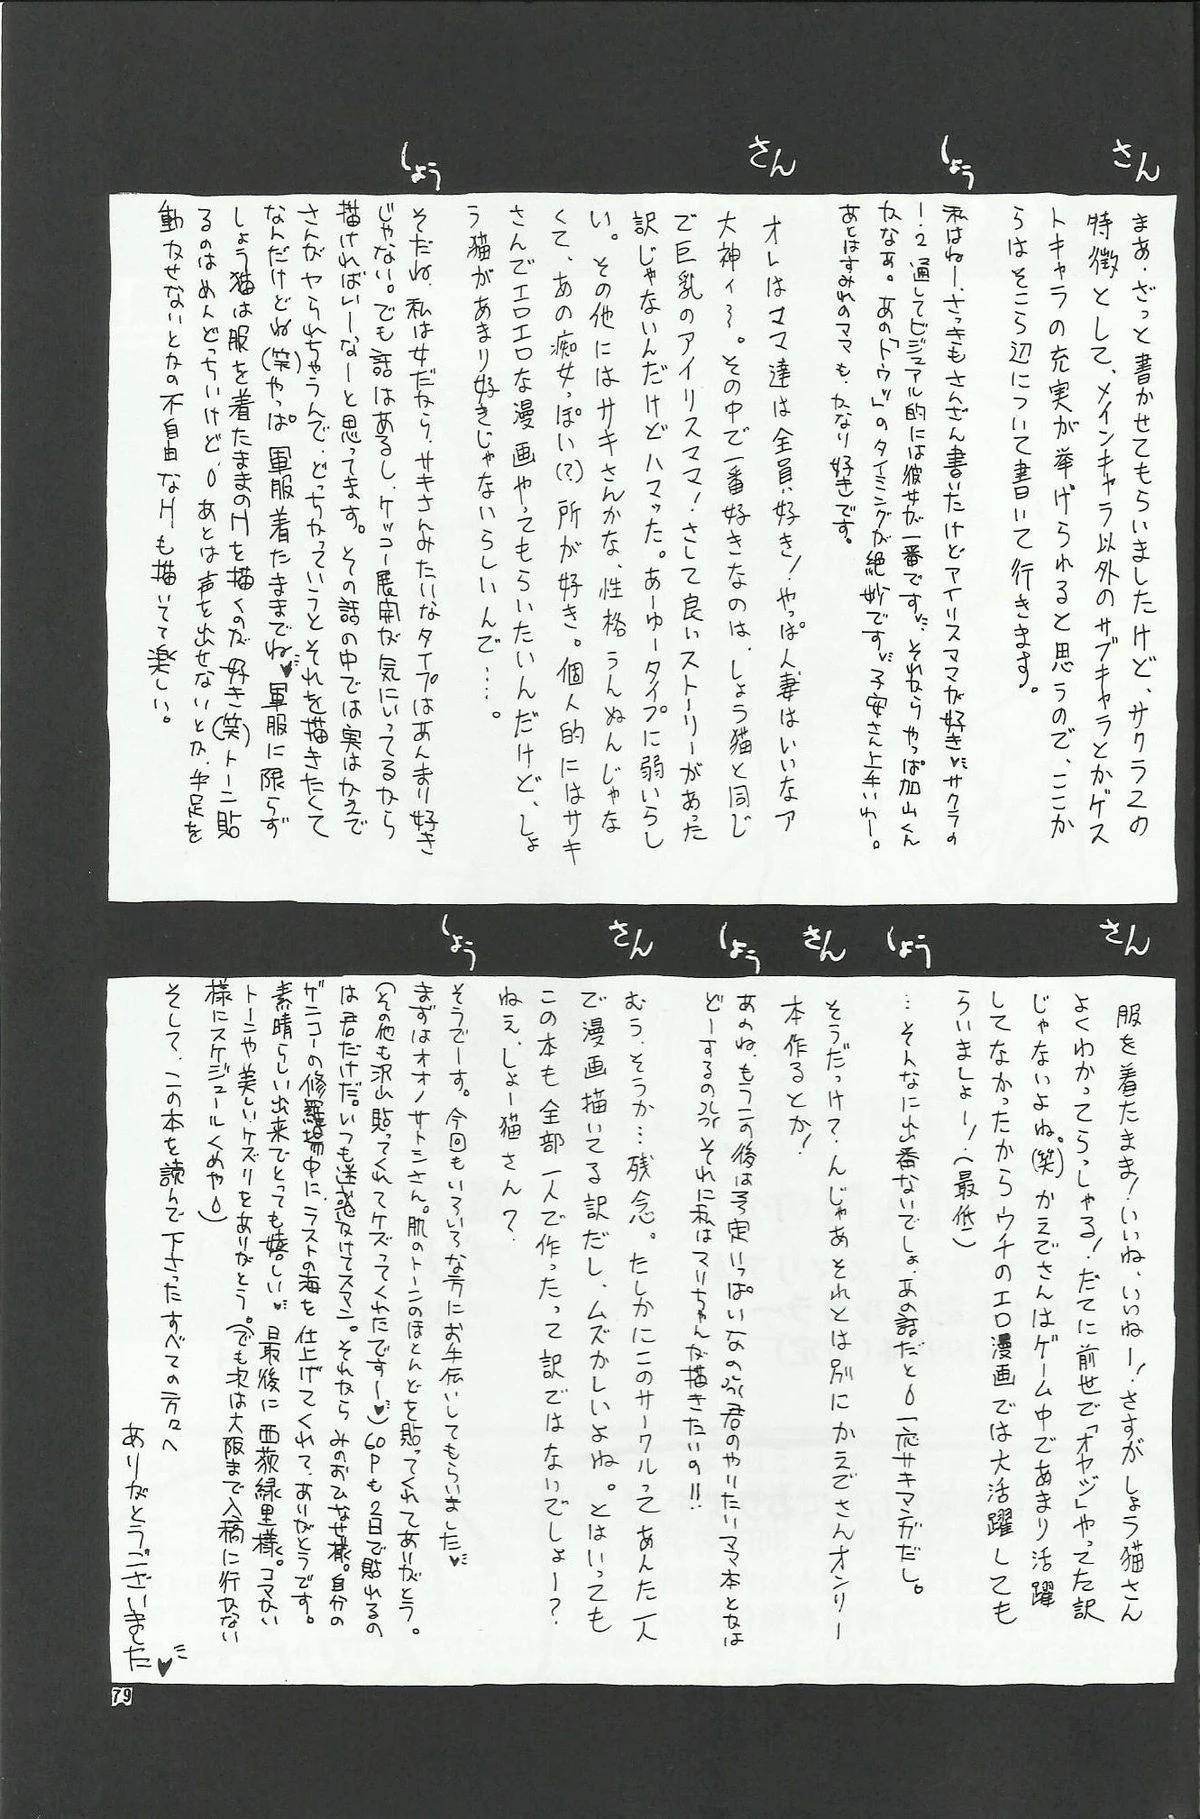 さん
まあ、ざっと書かせてもらいましたけど、サクラ2の
特徴として、メインキャラ以外のサブキャラとかゲス
トキャラの充実が挙げられると思うので、ここか
らはそこら辺について書いて行きます。
しょう
私はねー、さっきもさんざん書いたけどアイリスママが好き♥サクラの
1・2通してビジュアル的には彼女が一番です。それならやっぱ加山くん
かなあ。あの「トウッ」のタイミングが絶妙です。子安さん上手いわー。
あとはすみれのママも、かなり好きです。
さん
オレはママ達は全員好き!やっぱ人妻はいいなァ
大神ィ〜。その中で一番好きなのは、しょう猫と同じ
で巨乳のアイリスママ!さして良いストーリーがあった
訳じゃないんだけどハマった。あーゆータイプに弱いらし
い。その他にはサキさんかな、性格うんぬんじゃな
くて、あの痴女っぽい(?)所が好き。個人的にはサキ
さんでエロエロな漫画やってもらいたいんだけど、しょ
う猫があまり好きじゃないらしいんで…。
しょう
そだね、私は女だから、サキさんみたいなタイプはあんまり好き
じゃない。でも話はあるし、ケッコー展開が気にいってるなら
描ければいーなーと思ってます。その話の中では実はかえで
さんがヤられちゃうんで、どっちかっていうとそれを描きたくて
なんだけどね(笑)やっぱ軍服着たままでね♥軍服に限らず
しょう猫は服を着たままのHを描くのが好き(笑)トーン貼
るのはめんどっちいけど。あとは声を出せないとか、手足を
動かせないとかの不自由なHも描いてて楽しい。
さん
服を着たまま!いいね、いいねー!さすがしょう猫さん
よくわかってらっしゃる!だてに前世で「オヤジ」やってた訳
じゃないよね。(笑)かえでさんはゲーム中であまり活躍
してなかったからウチのエロ漫画では大活躍しても
らいましょー!(最低)
しょう
…そんなに出番ないでしょ、あの話だと。一応サキマンガだし。
さん
そうだっけ?んじゃあそれとは別にかえでさんオンリー
本作るとか!
しょう
あのね、もうこの後は予定いっぱいなの。君のやりたいママ本とかは
どーするの。それに私はマリちゃんが描きたいの!!
さん
むう、そうか…残念。たしかにこのサークルってあんた一人
で漫画描いてる訳だし、ムズかしいよね。とはいっても
この本も全部一人で作ったって訳ではないでしょー?
ねえ、しょー猫さん?
しょう
そうでーす。今回もいろいろな方にお手伝いしてもらいました♥
まずはオオノサトシさん。肌のトーンのほとんどを貼ってくれてありがとう。
(その他も沢山貼ってくれてケズってくれたです〜♥)60Pも2日で貼れるの
は君だけだ。いつも迷惑かけてスマン。それから みのおひなせ様。自分の
ゲンコーの修羅場中に、ラストの海を仕上げてくれて、ありがとうです。
素晴らしい出来でとっても嬉しい♥ 最後に西荻緑里様。コマかい
トーンや美しいケズリをありがとう。(でも次は大阪まで入稿に行かない
様にスケジュールくめや)
そして、この本を読んで下さったすべての方々へ
ありがとうございました♥
79